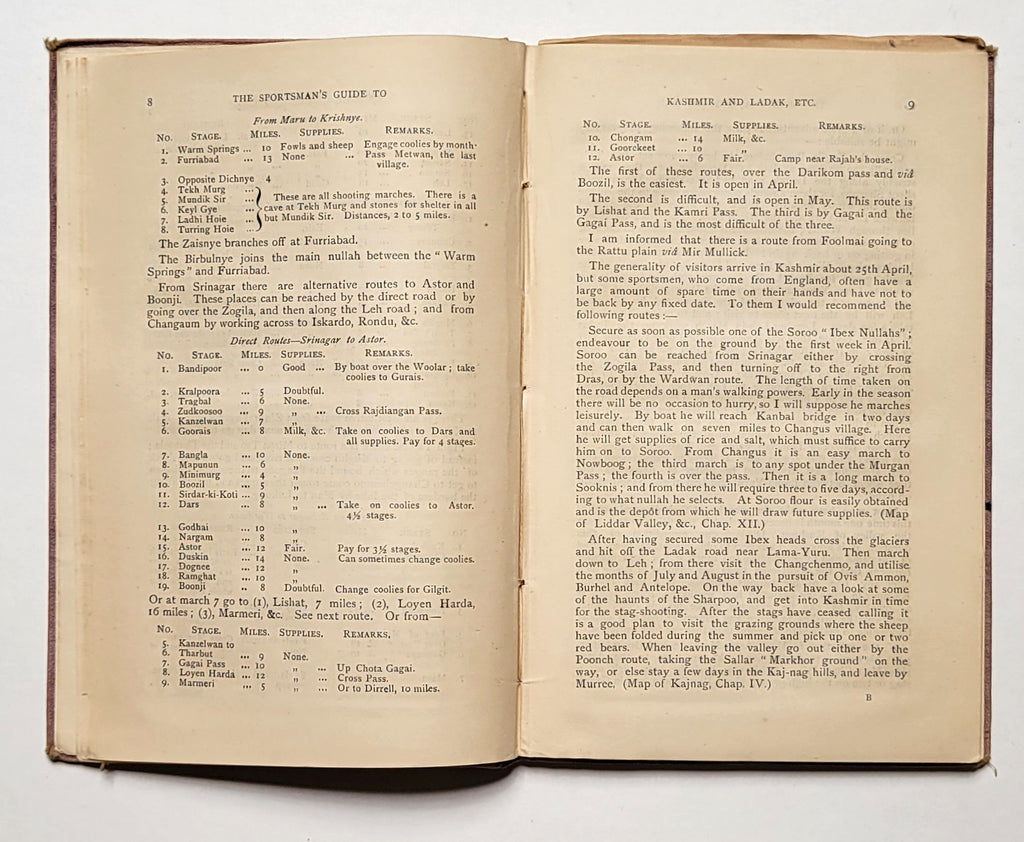 8 THE SPORTSMAN'S GUIDE TO
From Maru to Krishnye.
No. STAGE. MILES. SUPPLIES. REMARKS.
1. Warm Springs ... 10 Fowls and sheep Engage coolies by month.
2. Furriabad ... 13 None ... Pass Metwan, the last
village.
3. Opposite Dichnye 4
4. Tekh Murg ...
5. Mundik Sir ...
6. Keyl Gye ...
7. Ladhi Hoie ...
8. Turring Hoie ...
These are all shooting marches. There is a
cave at Tekh Murg and stones for shelter in all
but Mundik Sir. Distances, 2 to 5 miles.
The Zaisnye branches off at Furriabad.
The Birbulnye joins the main nullah between the "Warm
Springs" and Furriabad.
From Srinagar there are alternative routes to Astor and
Boonji. These places can be reached by the direct road or by
going over the Zogila, and then along the Leh road; and from
Changaum by working across to Iskardo, Rondu, &c.
Direct Routes—Srinagar to Astor.
No. STAGE. MILES. SUPPLIES. REMARKS.
1. Bandipoor ... 0 Good ... By boat over the Woolar; take
coolies to Gurais.
2. Kralpoora ... 5 Doubtful.
3. Tragbal ... 6 None.
4. Zudkoosoo ... 9 „ ... Cross Rajdiangan Pass.
5. Kanzelwan ... 7 „
6. Goorais ... 8 Milk, &c. Take on coolies to Dars and
all supplies. Pay for 4 stages.
7. Bangla ... 10 None.
8. Mapunun ... 6 „
9. Minimurg ... 4 „
10. Boozil ... 5 „
11. Sirdar-ki-Koti ... 9 „
12. Dars ... 8 „ ... Take on coolies to Astor.
4½ stages.
13. Godhai ... 10 „
14. Nargam ... 8 „
15. Astor ... 12 Fair. Pay for 3½ stages.
16. Duskin ... 14 None. Can sometimes change coolies.
17. Dognee ... 12 „
18. Ramghat ... 10 „
19. Boonji .. 8 Doubtful. Change coolies for Gilgit.
Or at march 7 go to (1), Lishat, 7 miles; (2), Loyen Harda,
16 miles; (3), Marmeri, &c. See next route. Or from—
No. STAGE. MILES. SUPPLIES. REMARKS.
5. Kanzelwan to
6. Tharbut ... 9 None.
7. Gagai Pass ... 10 „ ... Up Chota Gagai.
8. Loyen Harda ... 12 „ ... Cross Pass.
9. Marmeri ... 5 „ ... Or to Dirrell, 10 miles.
KASHMIR AND LADAK, ETC. 9
No. STAGE. MILES. SUPPLIES. REMARKS.
10. Chongam ... 14 Milk, &c.
11. Goorekeet ... 10 „
12. Astor ... 6 Fair. Camp near Rajah's house.
The first of these routes, over the Darikom pass and viâ
Boozil, is the easiest. It is open in April.
The second is difficult, and is open in May. This route is
by Lishat and the Kamri Pass. The third is by Gagai and the
Gagai Pass, and is the most difficult of the three.
I am informed that there is a route from Foolmai going to
the Rattu plain viâ Mir Mullick.
The generality of visitors arrive in Kashmir about 25th April,
but some sportsmen, who come from England, often have a
large amount of spare time on their hands and have not to
be back by any fixed date. To them I would recommend the
following routes:—
Secure as soon as possible one of the Soroo "Ibex Nullahs";
endeavour to be on the ground by the first week in April.
Soroo can be reached from Srinagar either by crossing
the Zogila Pass, and then turning off to the right from
Dras, or by the Wardwan route. The length of time taken on
the road depends on a man's walking powers. Early in the season
there will be no occasion to hurry, so I will suppose he marches
leisurely. By boat he will reach Kanbal bridge in two days
and can then walk on seven miles to Changus village. Here
he will get supplies of rice and salt, which must suffice to carry
him on to Soroo. From Changus it is an easy march to
Nowboog; the third march is to any spot under the Murgan
Pass; the fourth is over the pass. Then it is a long march to
Sooknis; and from there he will require three to five days, accord-
ing to what nullah he selects. At Soroo flour is easily obtained
and is the depôt from which he will draw future supplies. (Map
of Liddar Valley, &c., Chap. XII.)
After having secured some Ibex heads cross the glaciers
and hit off the Ladak road near Lama-Yuru. Then march
down to Leh; from there visit the Changchenmo, and utilise
the months of July and August in the pursuit of Ovis Ammon,
Burhel and Antelope. On the way back have a look at some
of the haunts of the Sharpoo, and get into Kashmir in time
for the stag-shooting. After the stags have ceased calling it
is a good plan to visit the grazing grounds where the sheep
have been folded during the summer and pick up one or two
red bears. When leaving the valley go out either by the
Poonch route, taking the Sallar "Markhor ground" on the
way, or else stay a few days in the Kaj-nag hills, and leave by
Murree. (Map of Kajnag, Chap. IV.)
B